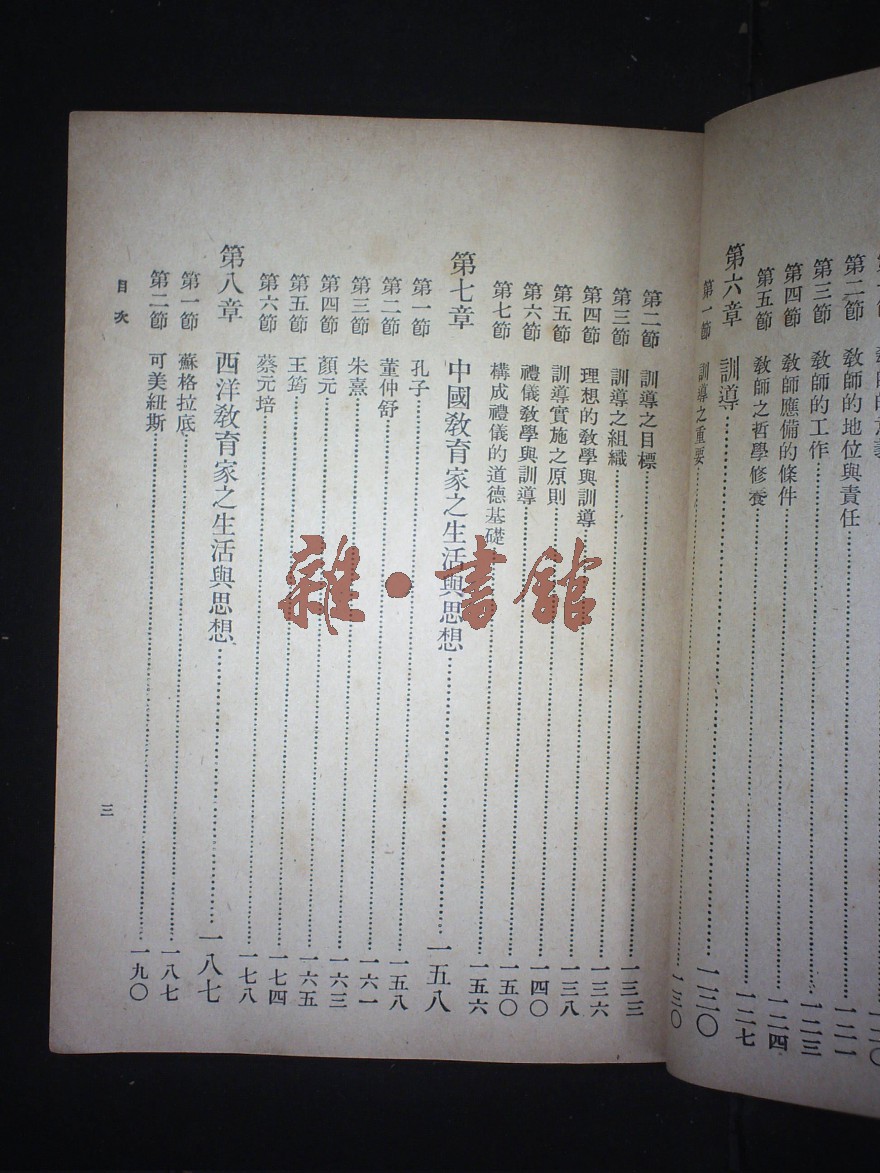 第二節 教師的地位與責任……一二一
第三節 教師的工作……一二三
第四節 教師應備的條件……一二四
第五節 教師之哲學修養……一二七
第六章 訓導……一三〇
第一節 訓導之重要……一三〇
第二節 訓導之目標……一三三
第三節 訓導之組織……一三六
第四節 理想的教學與訓導……一三八
第五節 訓導實施之原則……一四〇
第六節 禮儀教學與訓導……一五〇
第七節 構成禮儀的道德基礎……一五六
第七章 中國教育家之生活與思想……一五八
第一節 孔子……一五八
第二節 董仲舒……一六一
第三節 朱熹……一六三
第四節 顏元……一六五
第五節 王筠……一七四
第六節 蔡元培……一七八
第八章 西洋教育家之生活與思想……一八七
第一節 蘇格拉底……一八七
第二節 可美紐斯……一九〇
目次
三
雜·書館